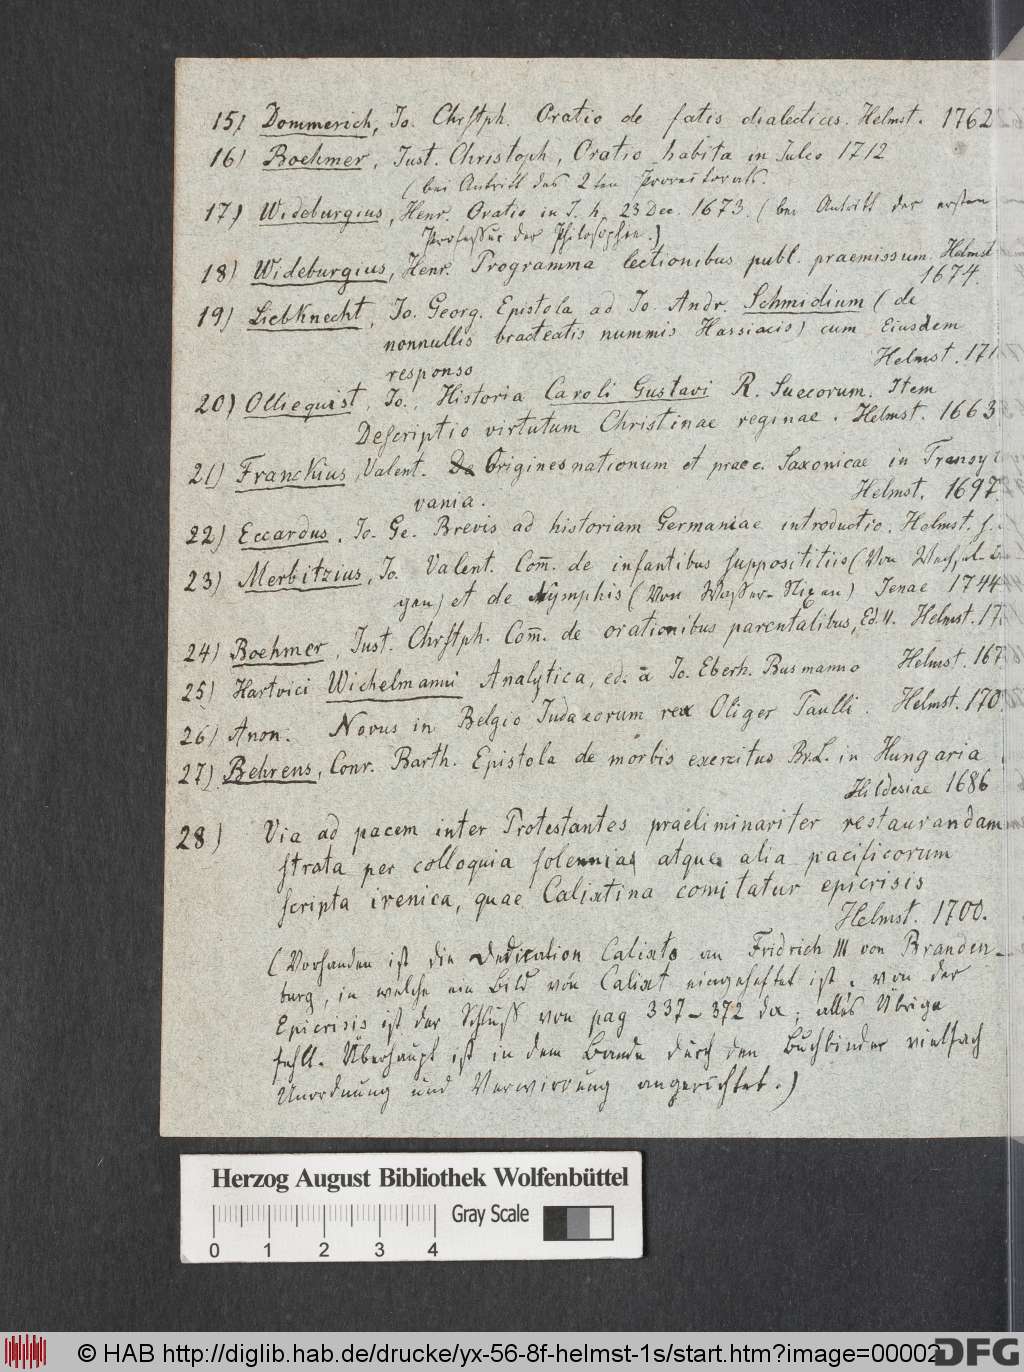 15) Dommerich, Jo. Chrstph. Oratio de fatis dialectices. Helmst. 1762
16) Boehmer, Just. Christoph, Oratio habita in Juleo 1712
(bei Antritt des 2ten Prorektorats.
17) Wideburgius, Henr. Oratio in J. h. 23 Dec. 1673. (bei Antritt der ersten
Professur der Philosophie.)
18) Wideburgius, Henr. Programma lectionibus publ. praemissum. Helmst
1674.
19) Liebknecht, Jo. Georg. Epistola ad Jo. Andr. Schmidium (de
nonnullis bracteatis nummis Hassiacis) cum Eiusdem
responso Helmst. 171
20) Olliequist, Jo., Historia Caroli Gustavi R. Suecorum. Item
Descriptio virtutum Christinae reginae. Helmst. 1663
21) Franckius, Valent. De Origines nationum et praec. Saxonicae in Transyl
vania. Helmst. 1697.
22) Eccardus, Jo. Ge. Brevis ad historiam Germaniae introductio. Helmst.
23) Merbitzius, Jo. Valent. Com̄. de infantibus supposititiis (Von Wechsel-
gen) et de Nymphis (Von Wasser-Nixen) Jenae 1744
24) Boehmer, Just. Chrstph. Com̄. de orationibus parentalibus, Ed. II. Helmst. 17
25) Hartvici Wichelmanni Analytica, ed. a Jo. Eberh. Busmanno Helmst. 167
26) Anon. Novus in Belgio Judaeorum rex Oliger Paulli. Helmst. 170
27) Behrens, Conr. Barth. Epistola de morbis exercitus Br.L. in Hungaria
Hildesiae 1686
28) Via ad pacem inter Protestantes praeliminariter restaurandam
strata per colloquia solennia atque alia pacificorum
scripta irenica, quae Calixtina comitatur epicrisis
Helmst. 1700.
(Vorhanden ist die Dedikation Calixts an Fridrich III von Branden-
burg, in welche ein Bild von Calixt eingeheftet ist, von der
Epicrisis ist der Schluss von pag 337-372 da; alles Übrige
fehlt. Überhaupt ist in dem Bande durch den Buchbinder vielfach
Unordnung und Verwirrung angerichtet.)
Herzog August Bibliothek Wolfenbüttel
Gray Scale
0 1 2 3 4
© HAB http://diglib.hab.de/drucke/yx-56-8f-helmst-1s/start.htm?image=00002
DFG